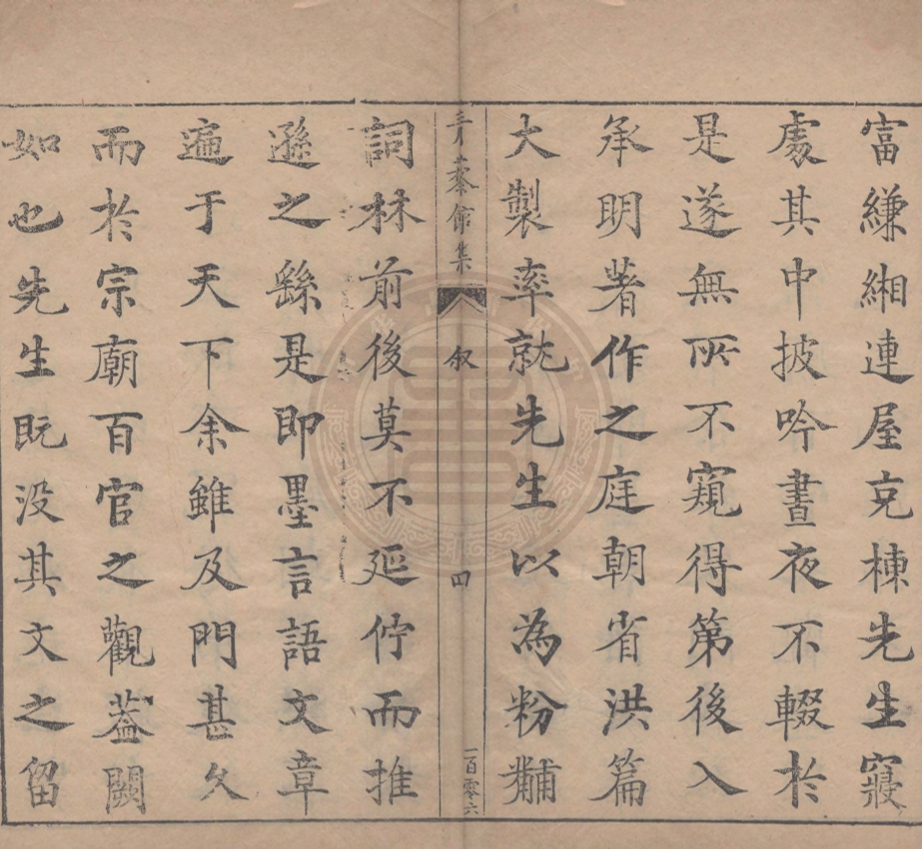 富縑緗連屋克棟先生寢
處其中披吟晝夜不輟扵
是遂無所不窺得第後入
承明著作之庭朝省洪篇
大製率就先生以為粉黼
青來館集
叙
四
一百零六
詞林前後莫不延佇而推
遜之繇是即墨言語文章
遍于天下余雖及門甚久
而扵宗廟百官之觀葢闕
如也先生既没其文之留